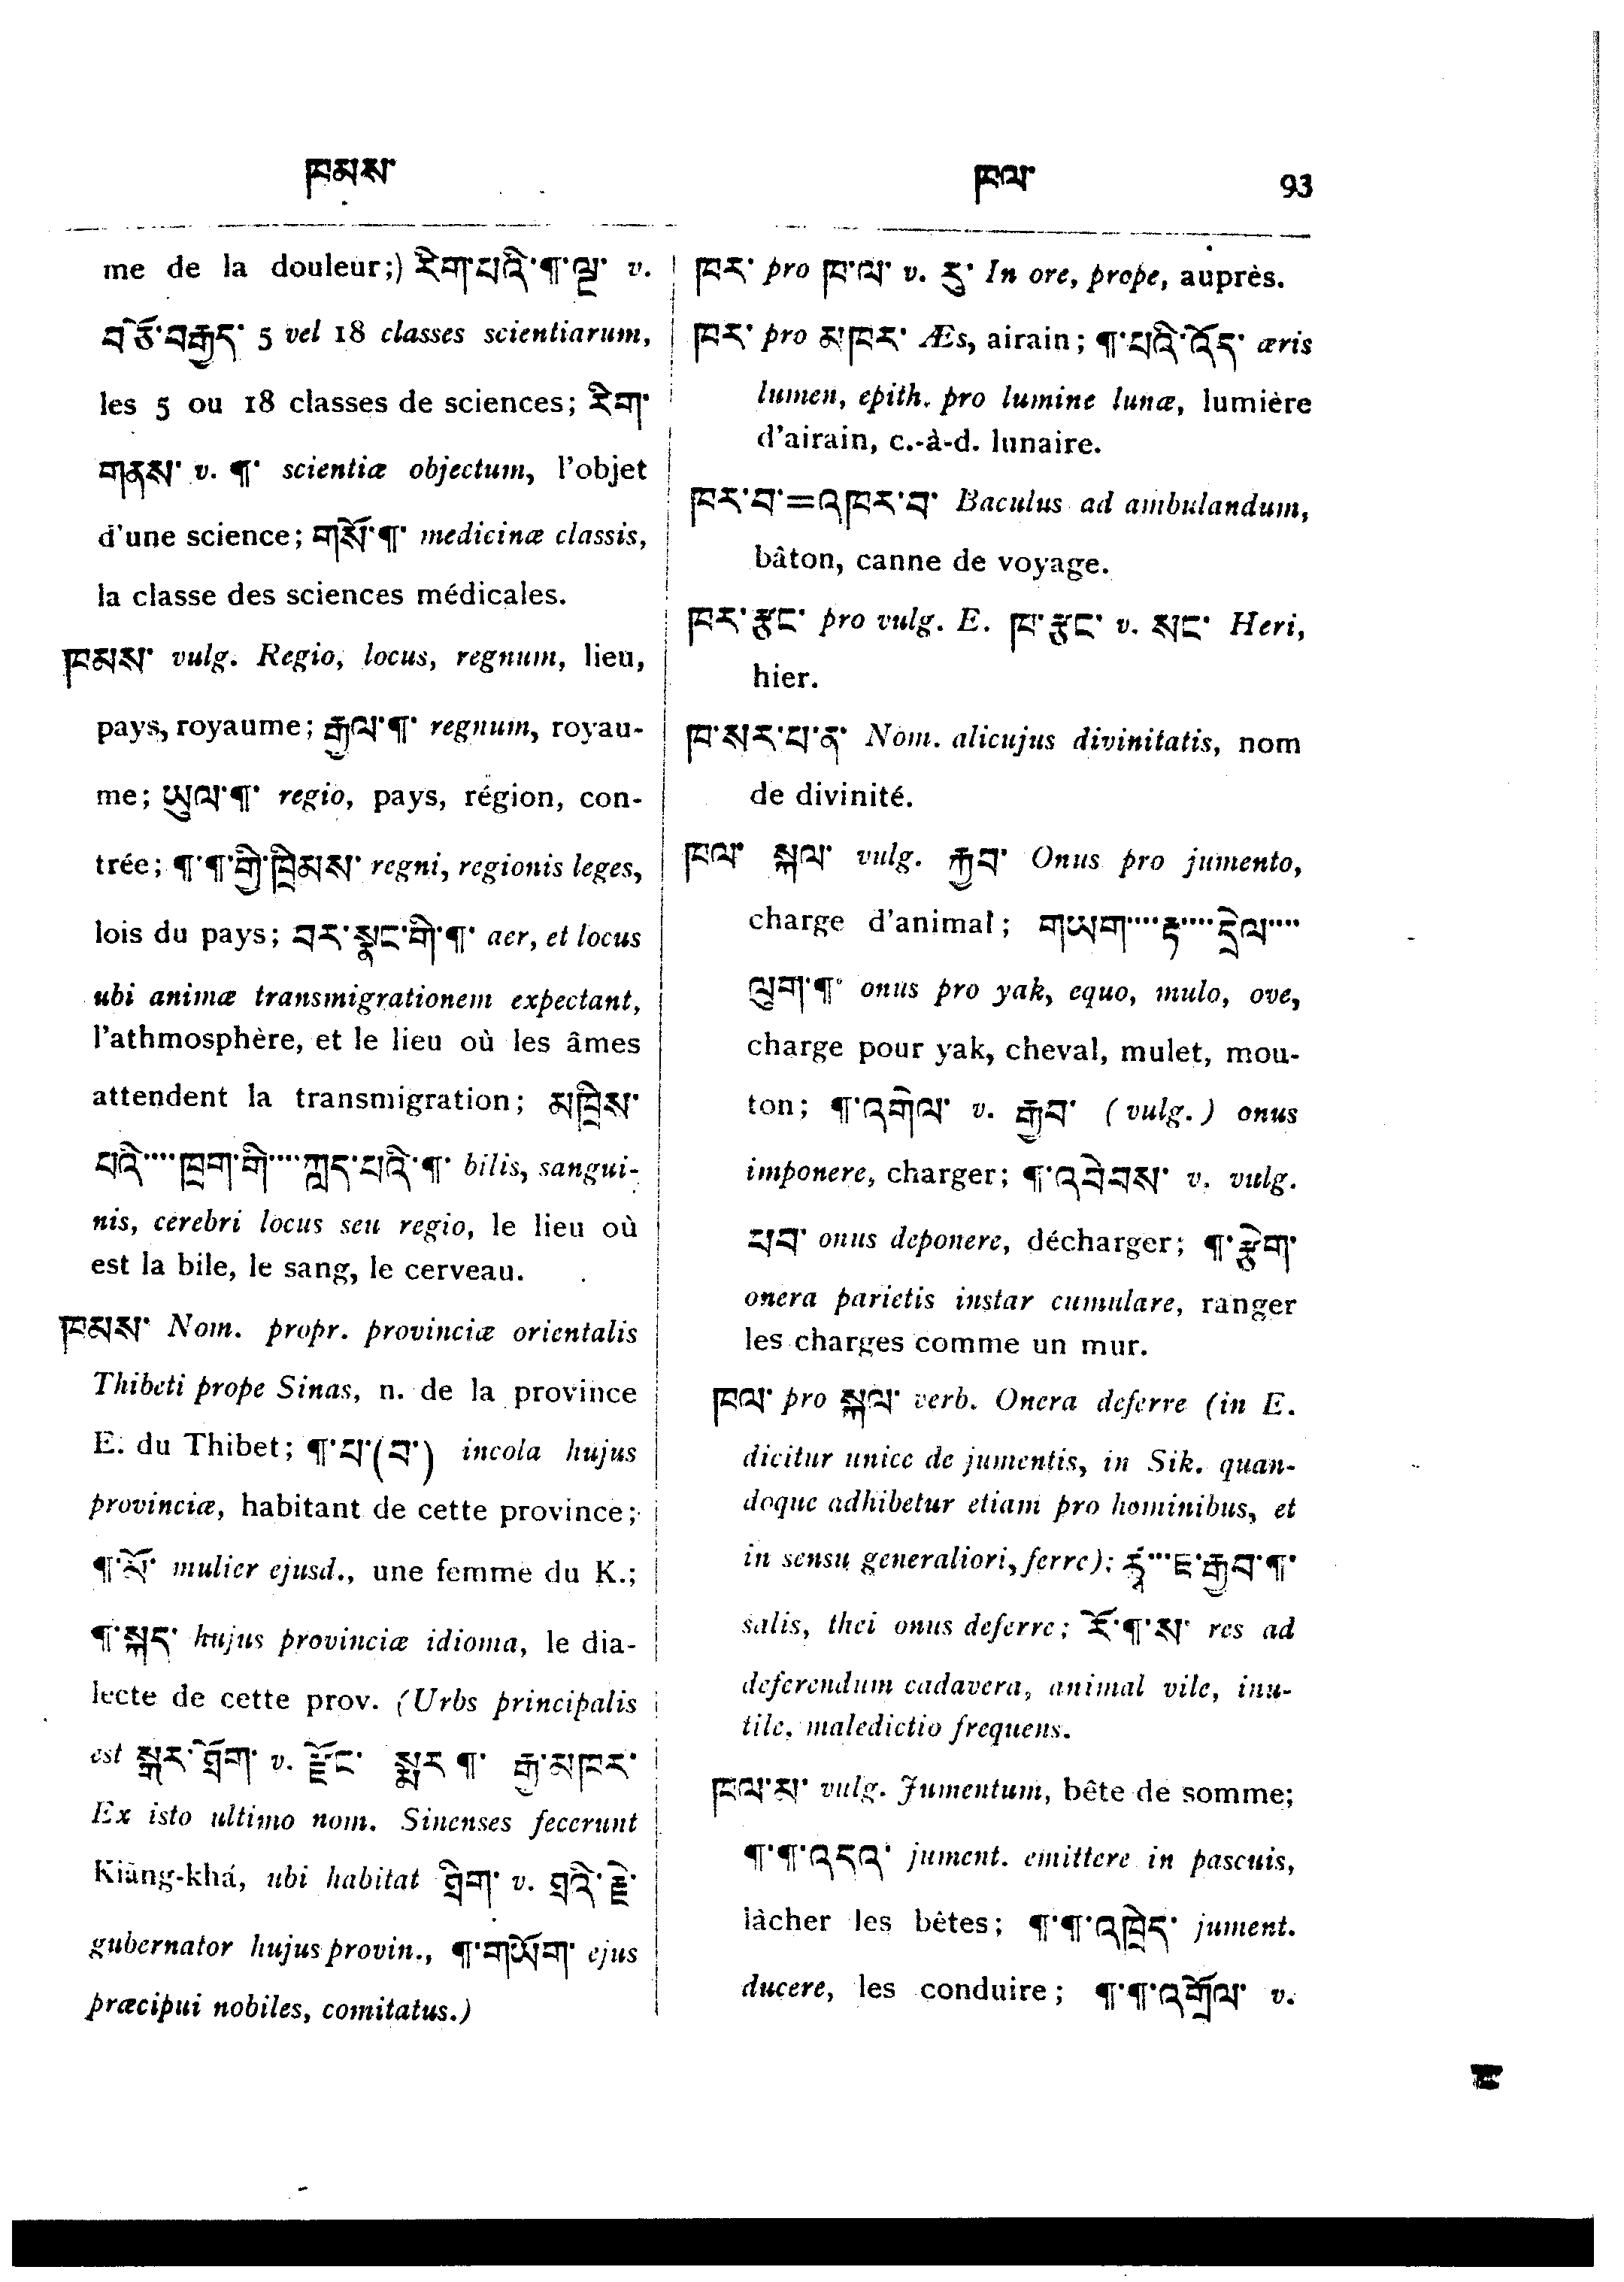 ཁམས་
ཁལ་
93
me de la douleur;) རིག་པའི་¶་ལྔ་ v.
བཅོ་བརྒྱད་ 5 vel 18 classes scientiarum,
les 5 ou 18 classes de sciences; རིག་
གནས་ v. ¶་ scientiæ objectum, l'objet
d'une science; གསོ་¶་ medicinæ classis,
la classe des sciences médicales.
ཁམས་ vulg. Regio, locus, regnum, lieu,
pays, royaume; རྒྱལ་¶་ regnum, royau-
me; ཡུལ་¶་ regio, pays, région, con-
trée; ¶་¶་གྱི་ཁྲིམས་ regni, regionis leges,
lois du pays; བར་སྣང་གི་¶་ aer, et locus
ubi animæ transmigrationem expectant,
l'athmosphère, et le lieu où les âmes
attendent la transmigration; མཁྲིས་
པའི་····ཁྲག་གི་····ཀླད་པའི་¶་ bilis, sangui-
nis, cerebri locus seu regio, le lieu où
est la bile, le sang, le cerveau.
ཁམས་ Nom. propr. provinciæ orientalis
Thibeti prope Sinas, n. de la province
E. du Thibet; ¶་པ་(བ་) incola hujus
provinciæ, habitant de cette province;
¶་མོ་ mulier ejusd., une femme du K.;
¶་སྐད་ hujus provinciæ idioma, le dia-
lecte de cette prov. (Urbs principalis
est སྒར་ཐོག་ v. རྫོང་ སྨར་¶་ རྒྱ་མཁར་
Ex isto ultimo nom. Sinenses fecerunt
Kiāng-khá, ubi habitat ཐྲིག་ v. ཐྲའི་རྗེ་
gubernator hujus provin., ¶་གཡོག་ ejus
præcipui nobiles, comitatus.)
ཁར་ pro ཁ་ལ་ v. རུ་ In ore, prope, auprès.
ཁར་ pro མཁར་ Æs, airain; ¶་པའི་འོད་ æris
lumen, epith. pro lumine lunæ, lumière
d'airain, c.-à-d. lunaire.
ཁར་བ་=འཁར་བ་ Baculus ad ambulandum,
bâton, canne de voyage.
ཁར་རྩང་ pro vulg. E. ཁ་རྩང་ v. སང་ Heri,
hier.
ཁ་སར་པ་ན་ Nom. alicujus divinitatis, nom
de divinité.
ཁལ་ སྐལ་ vulg. རྐྱབ་ Onus pro jumento,
charge d'animal; གཡག····རྟ་····དྲེལ་····
ལུག་¶་ onus pro yak, equo, mulo, ove,
charge pour yak, cheval, mulet, mou-
ton; ¶་འགེལ་ v. རྒྱབ་ (vulg.) onus
imponere, charger; ¶་འབེབས་ v. vulg.
ཕབ་ onus deponere, décharger; ¶་རྩེག་
onera parietis instar cumulare, ranger
les charges comme un mur.
ཁལ་ pro སྐལ་ verb. Onera deferre (in E.
dicitur unice de jumentis, in Sik. quan-
doque adhibetur etiam pro hominibus, et
in sensu generaliori, ferre); ཚྭ་···ཇ་རྒྱབ་¶་
salis, thei onus deferre; རོ་¶་མ་ res ad
deferendum cadavera, animal vile, inu-
tile, maledictio frequens.
ཁལ་མ་ vulg. Jumentum, bête de somme;
¶་¶་འདའ་ jument. emittere in pascuis,
lâcher les bêtes; ¶་¶་འཁྲིད་ jument.
ducere, les conduire; ¶་¶་འགྲོལ་ v.